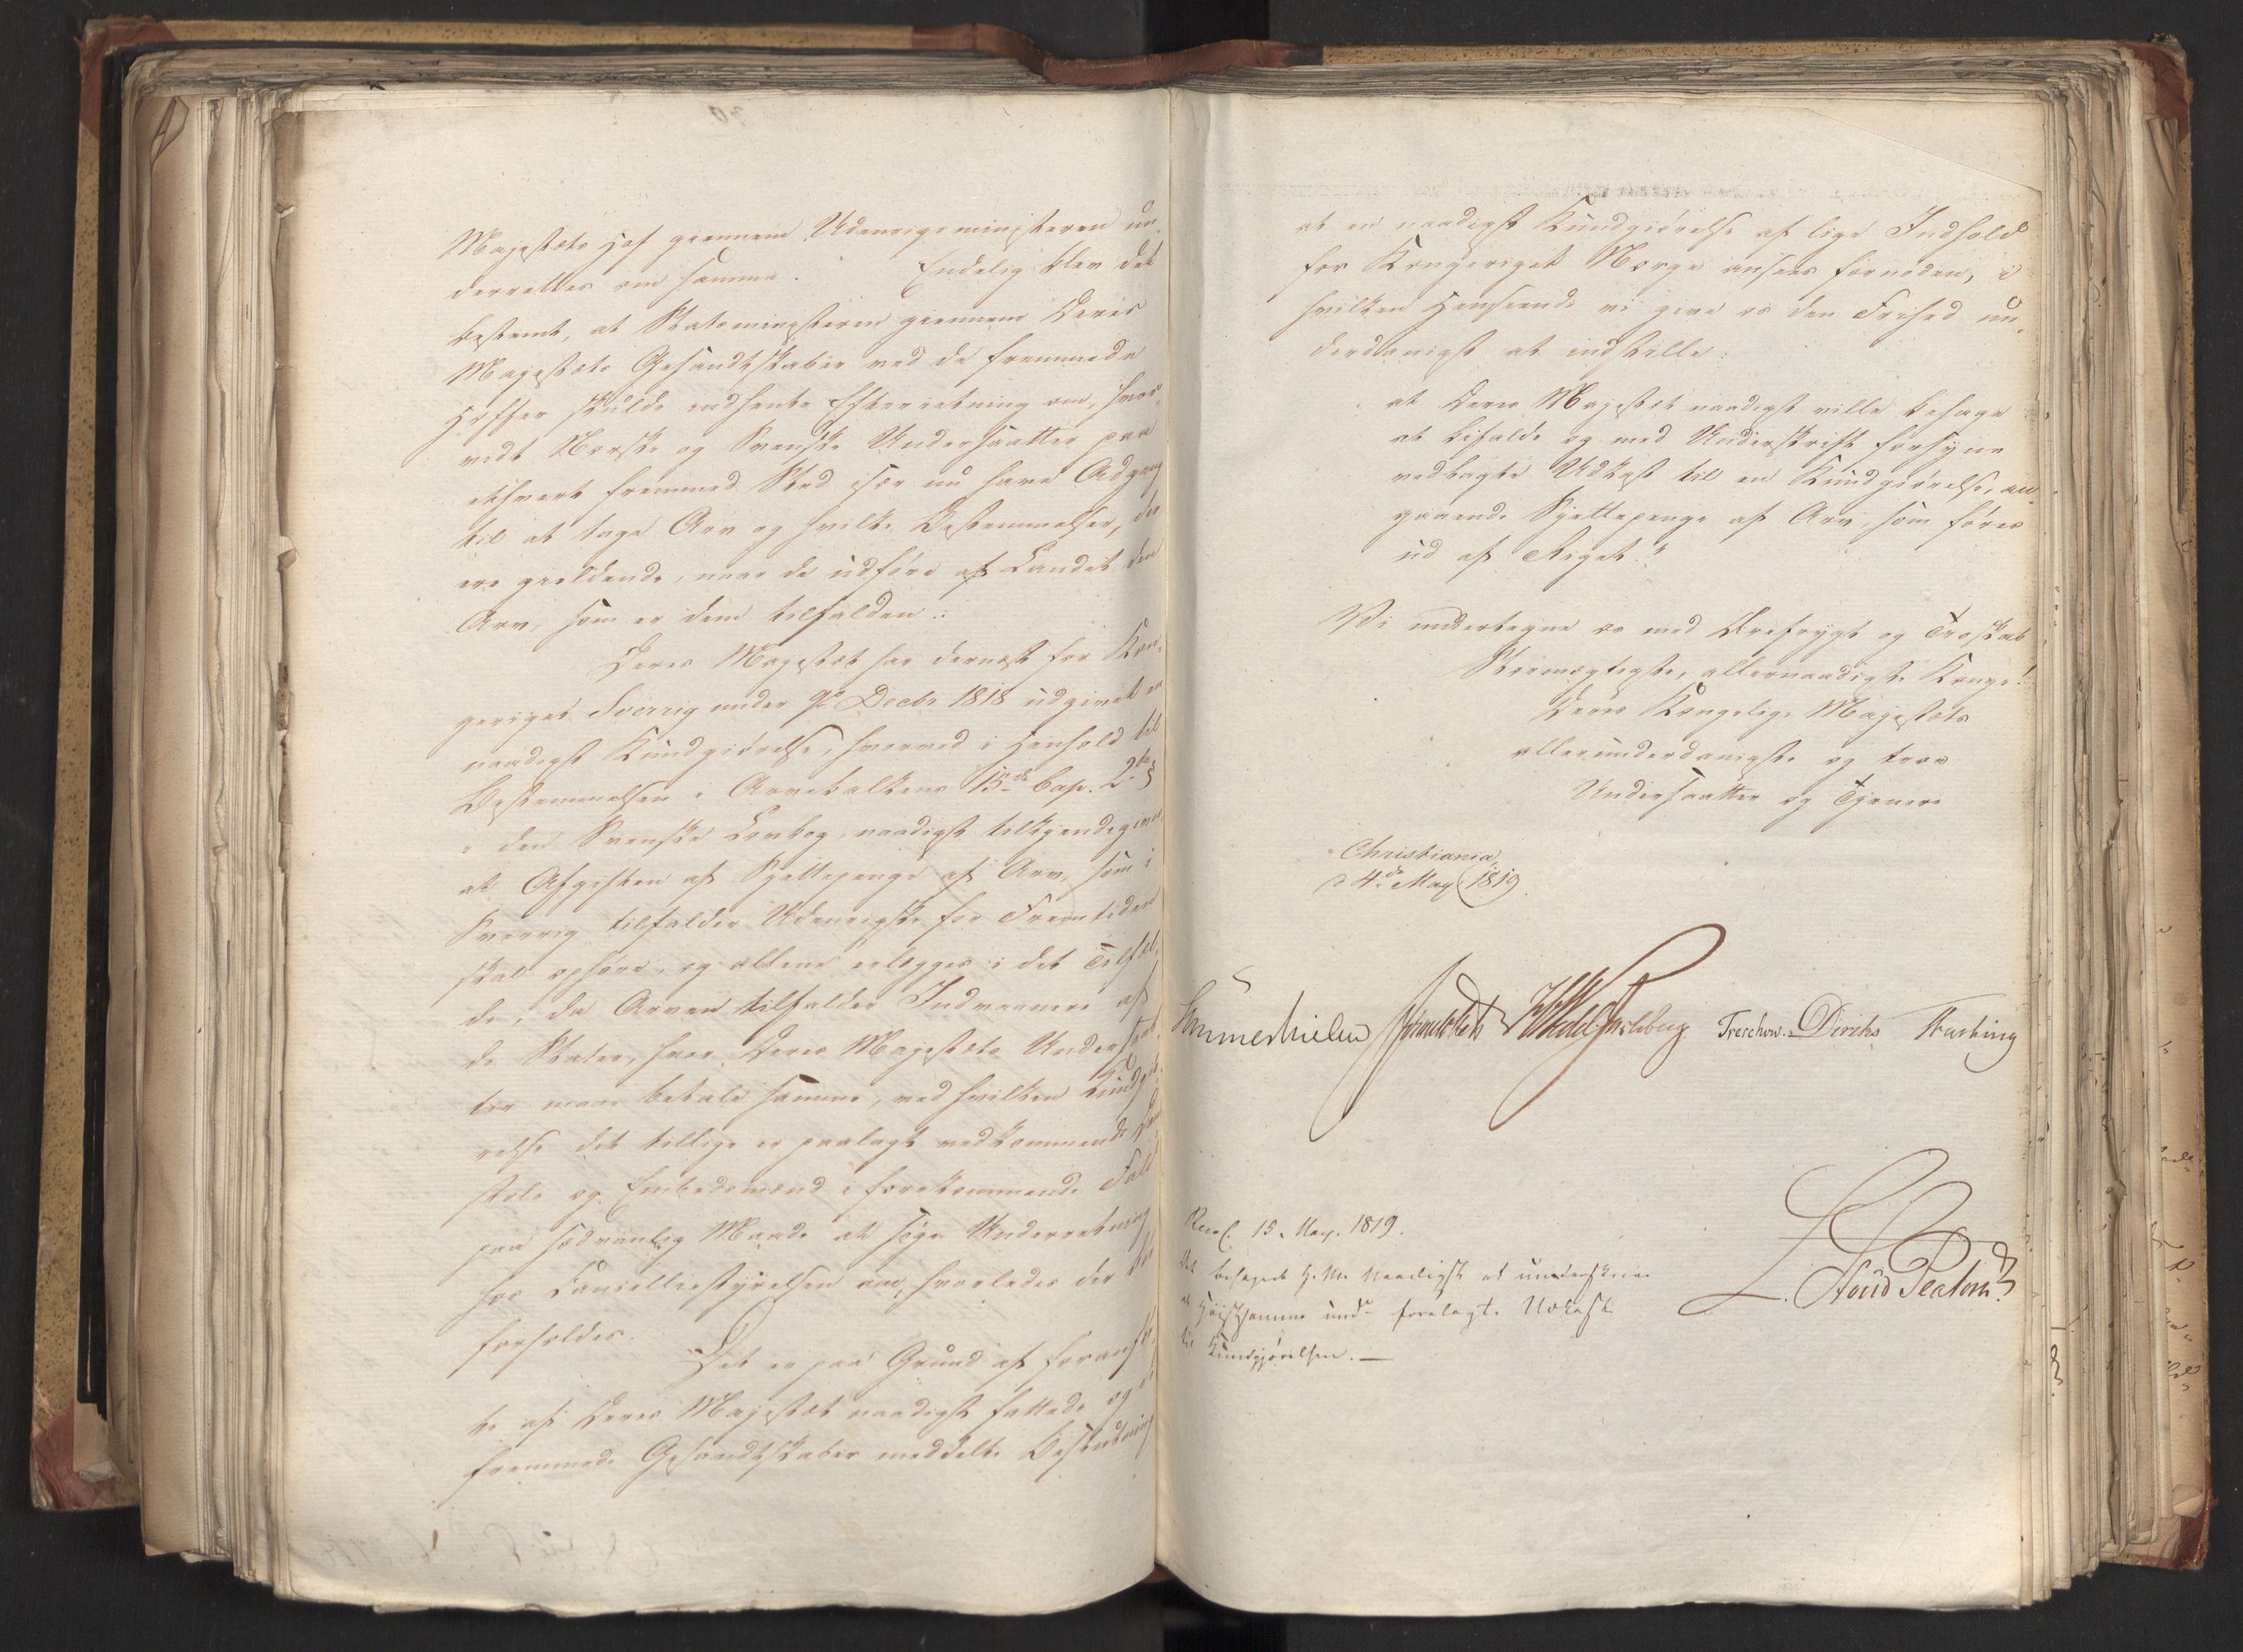 Majestæts Hof giennem Udenrigsministeren un-
derrettes om samme. Endelig blev det
bestemt, at Statsministeren giennem Deres
Majestæts Gesandtskaber ved de fremmede
Hoffer skulde indhente Efterretning om, hvor-
vidt Norske og Svenske Undersaatter paa
ethvert fremmed Sted især nu have Adgang
til at tage Arv og hvilke Bestemmelser, der
ere gieldende, naar de udføre af Landet den
Arv, som er dem tilfalden.
Deres Majestæt har dernæst for Kon-
geriget Sverrig under 9de Decbr 1818 udgivet en
naadigst Kundgiørelse, hvorved i Henhold til
Bestemmelsen i Arvebalkens 15de Cap. 2den §
i den Svenske Lovbog, naadigst tilkjendegives
at Afgiften af Sjettepenge af Arv, som i
Sverrig tilfalder Udenrigske for Fremtiden
skal ophøre, og allene erlægges i det Tilfæl-
de, da Arven tilfalder Indvaanere af
de Stater, hvor Deres Majestæts Undersaat-
ter maae betale samme, ved hvilken Kundgiø-
relse det tillige er paalagt vedkommende Dom-
stole og Embedsmænd i forekommende Fald
paa sædvanlig Maade at søge Underretning
hos Cancelliestyrelsen om, hvorledes der bør
forholdes.
Det er paa Grund af foranfør-
te af Deres Majestæt naadigst fattede og de
fremmede Gesandtskaber meddelte Beslutning
at en naadigst Kundgiørelse af lige Indhold
for Kongeriget Norge ansees fornøden, i
hvilken Henseende vi give os den Frihed un-
derdanigst at indstille:
at Deres Majestæt naadigst ville behage
at bifalde og med Underskrift forsyne
vedlagte Udkast til en Kundgiørelse, an-
gaaende Sjettepenge af Arv, som føres
ud af Riget."
Vi undertegne os med Ærefrygt og Troskab
Stormægtigste, allernaadigste Konge!
Deres Kongelige Majestæts
allerunderdanigste og troe
Undersaatter og Tjenere
Christiania,
d 4de May 1819.
Sommerhielm WedelJarlsberg Treschow. Diriks Fasting
L. Stoud Platou
Resol. 15. May. 1819.
Det behagede H. M. Naadigst at underskrive
det Høistsamme und. forelagte Udkast
til Kundgjørelsen. —